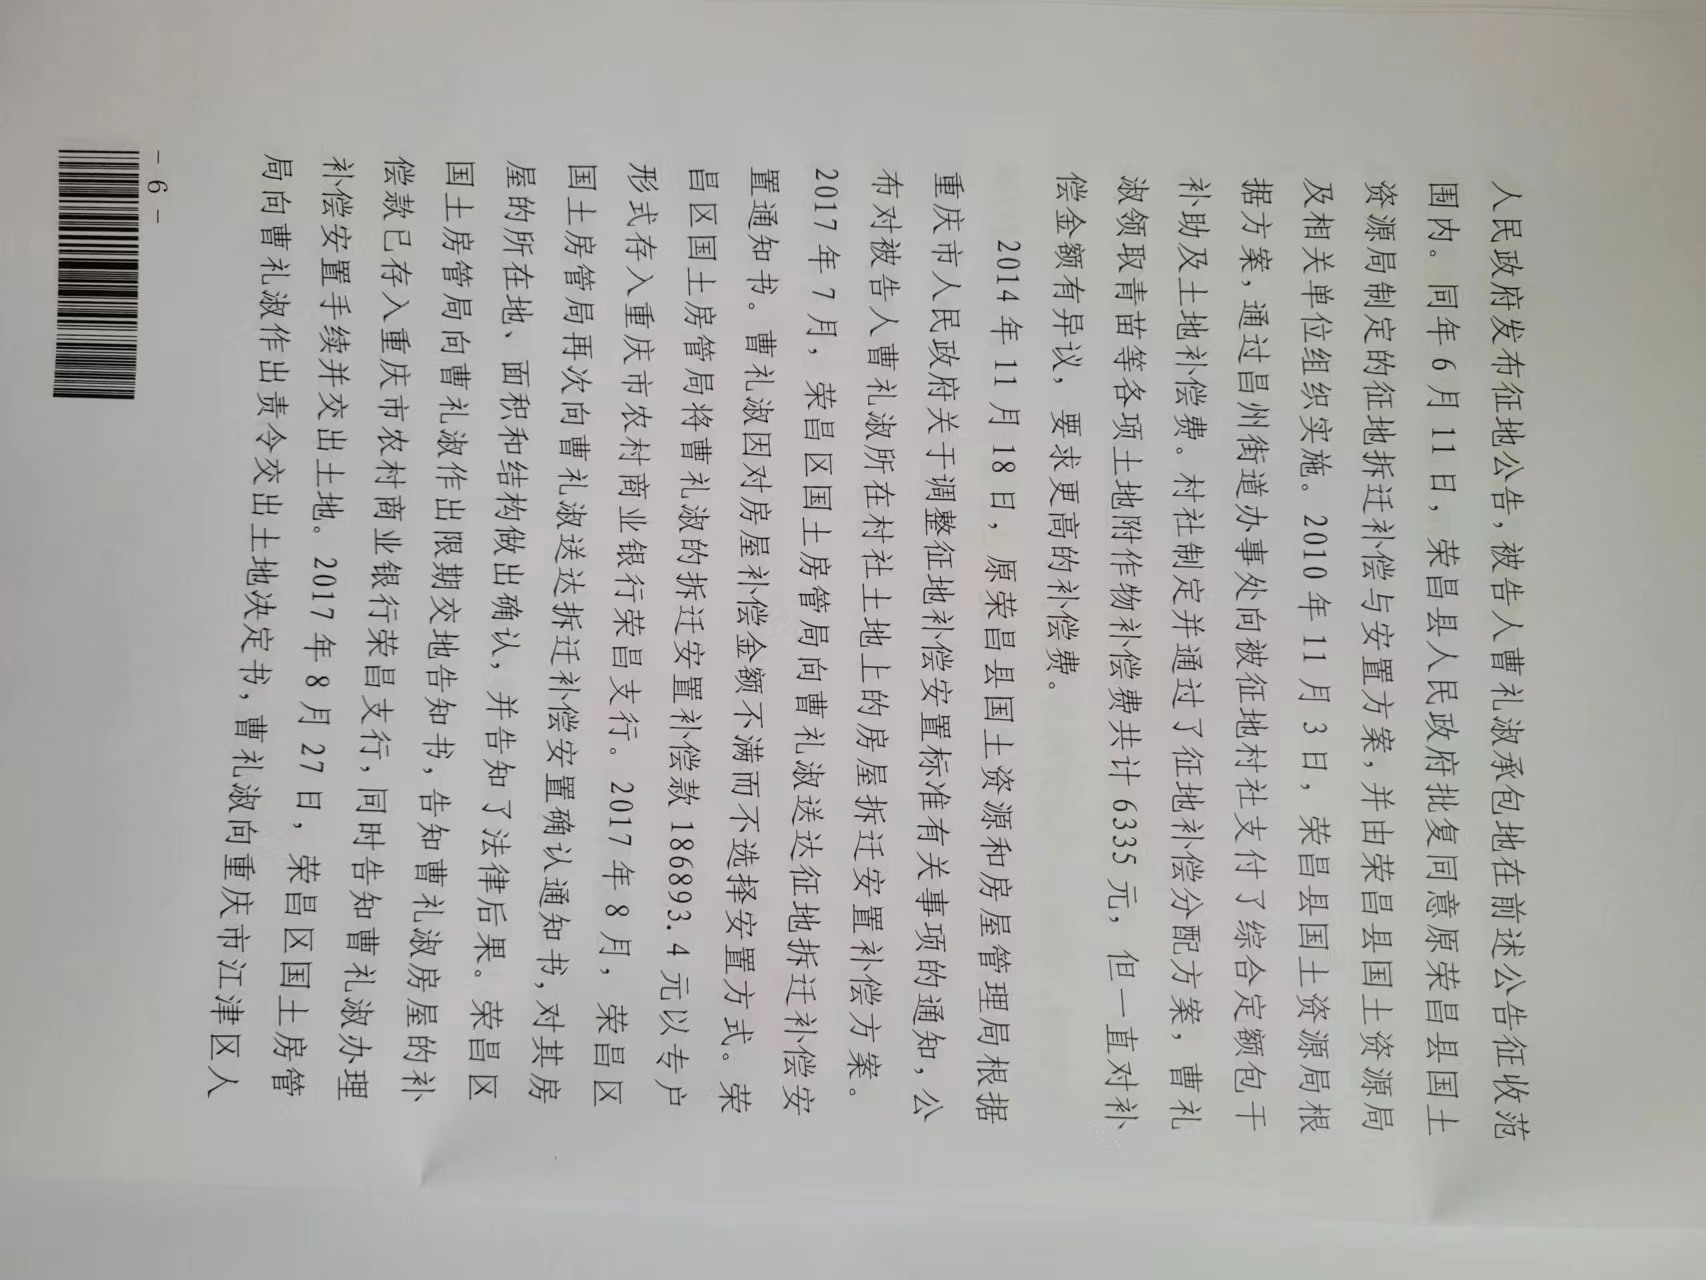 人民政府发布征地公告，被告人曹礼淑承包地在前述公告征收范
围内。同年 6 月 11 日，荣昌县人民政府批复同意原荣昌县国土
资源局制定的征地拆迁补偿与安置方案，并由荣昌县国土资源局
及相关单位组织实施。2010 年 11 月 3 日，荣昌县国土资源局根
据方案，通过昌州街道办事处向被征地村社支付了综合定额包干
补助及土地补偿费。村社制定并通过了征地补偿分配方案，曹礼
淑领取青苗等各项土地附作物补偿费共计 6335 元，但一直对补
偿金额有异议，要求更高的补偿费。
2014 年 11 月 18 日，原荣昌县国土资源和房屋管理局根据
重庆市人民政府关于调整征地补偿安置标准有关事项的通知，公
布对被告人曹礼淑所在村社土地上的房屋拆迁安置补偿方案。
2017 年 7 月，荣昌区国土房管局向曹礼淑送达征地拆迁补偿安
置通知书。曹礼淑因对房屋补偿金额不满而不选择安置方式。荣
昌区国土房管局将曹礼淑的拆迁安置补偿款 186893.4 元以专户
形式存入重庆市农村商业银行荣昌支行。2017 年 8 月，荣昌区
国土房管局再次向曹礼淑送达拆迁补偿安置确认通知书，对其房
屋的所在地、面积和结构做出确认，并告知了法律后果。荣昌区
国土房管局向曹礼淑作出限期交地告知书，告知曹礼淑房屋的补
偿款已存入重庆市农村商业银行荣昌支行，同时告知曹礼淑办理
补偿安置手续并交出土地。2017 年 8 月 27 日，荣昌区国土房管
局向曹礼淑作出责令交出土地决定书，曹礼淑向重庆市江津区人
- 6 -